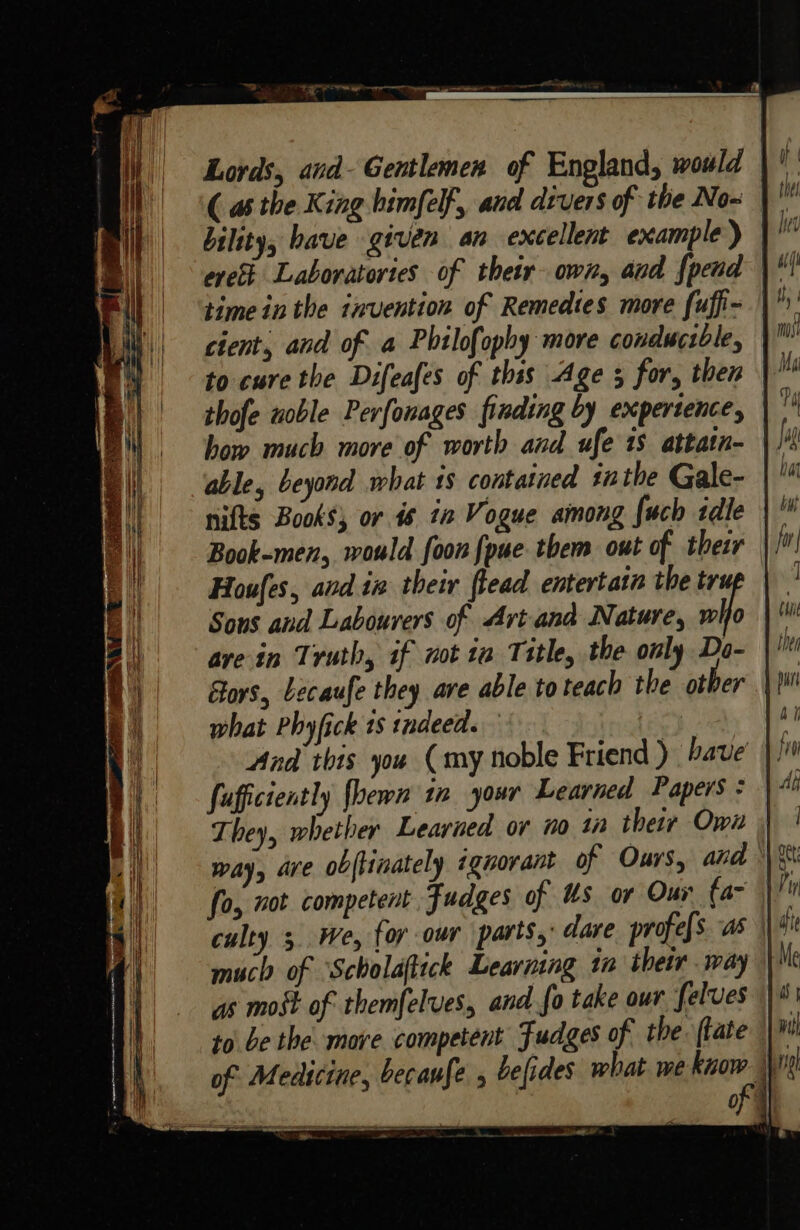 Lords, and Gentlemen of England, would
(as the King himſelf, and divers of the No-
bility, have given an excellent example)
erect Laboratories of their own, and ſpend
time in the invention of Remedies more ſuffi-
cient, and of a Philoſophy more conducible,
to cure the Diſeaſes of this Age; for, then
thoſe noble Perſonages finding by experience,
how much more of worth and uſe is attain-
able, beyond what is contained in the Gale-
niſts Books, or is in Vogue among ſuch idle
Book-men, would ſoon ſpue them out of their
Houſes, and in their ſtead entertain the true
Sons and Labourers of Art and Nature, who
are in Truth, if not in Title, the only Do-
ctors, becauſe they are able to teach the other
what Phyſick is indeed.
And this you (my noble Friend) have
ſufficiently ſhewn in your Learned Papers:
They, whether Learned or no in their Own
way, are obſtinately ignorant of Ours, and
ſo, not competent Judges of Us or Our fa-
culty; We, for our parts, dare profeſs as
much of Scholaſtick Learning in their way
as moſt of themſelves, and ſo take our ſelves
to be the more competent Judges of the ſtate
of Medicine, becauſe, beſides what we know
of